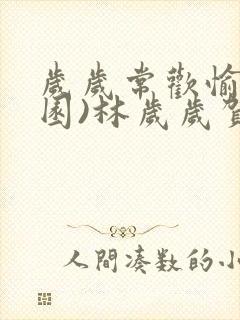 歲歲常歡愉
園)林歲歲
人間湊数的小